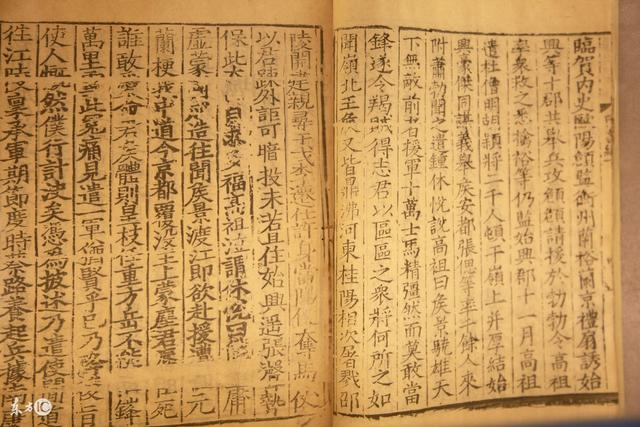 臨賀內史歐陽頠監衡州蘭裕蘭京禮扇誘始
興等十郡共舉兵攻頠頠請援於勃勃令高祖
率衆救之悉擒裕等仍監始興郡十一月高祖
遣杜僧明胡穎將二千人頓于嶺上并厚結始
興豪傑同謀義舉侯安都張偲等率千餘人來
附蕭勃聞之遣鍾休悅說高祖曰侯景驍雄天
下無敵前者援軍十萬士馬精彊然而莫敢當
鋒遂令羯賊得志君以區區之衆將何所之如
聞嶺北王侯又皆鼎沸河東桂陽相次屠戮邵
陵開建親尋干戈李遷仕許身當陽便奪馬仗
以君疎外詎可暗投未若且住始興遥張聲勢
保此太自求多福高祖泣謂休悅曰庸
虛蒙國造往聞侯景渡江即欲赴援遭元
蘭梗我中道今京都覆没主上蒙塵君死
誰敢愛命君侯體則皇枝任重方岳不能鋒
萬里雪此冤痛見遣一軍猶賢乎已乃後旨
使人慨然僕行計決矣憑爲披述乃遣使間道
往江陵稟承軍期節度時蔡路養起兵據南
东方IC